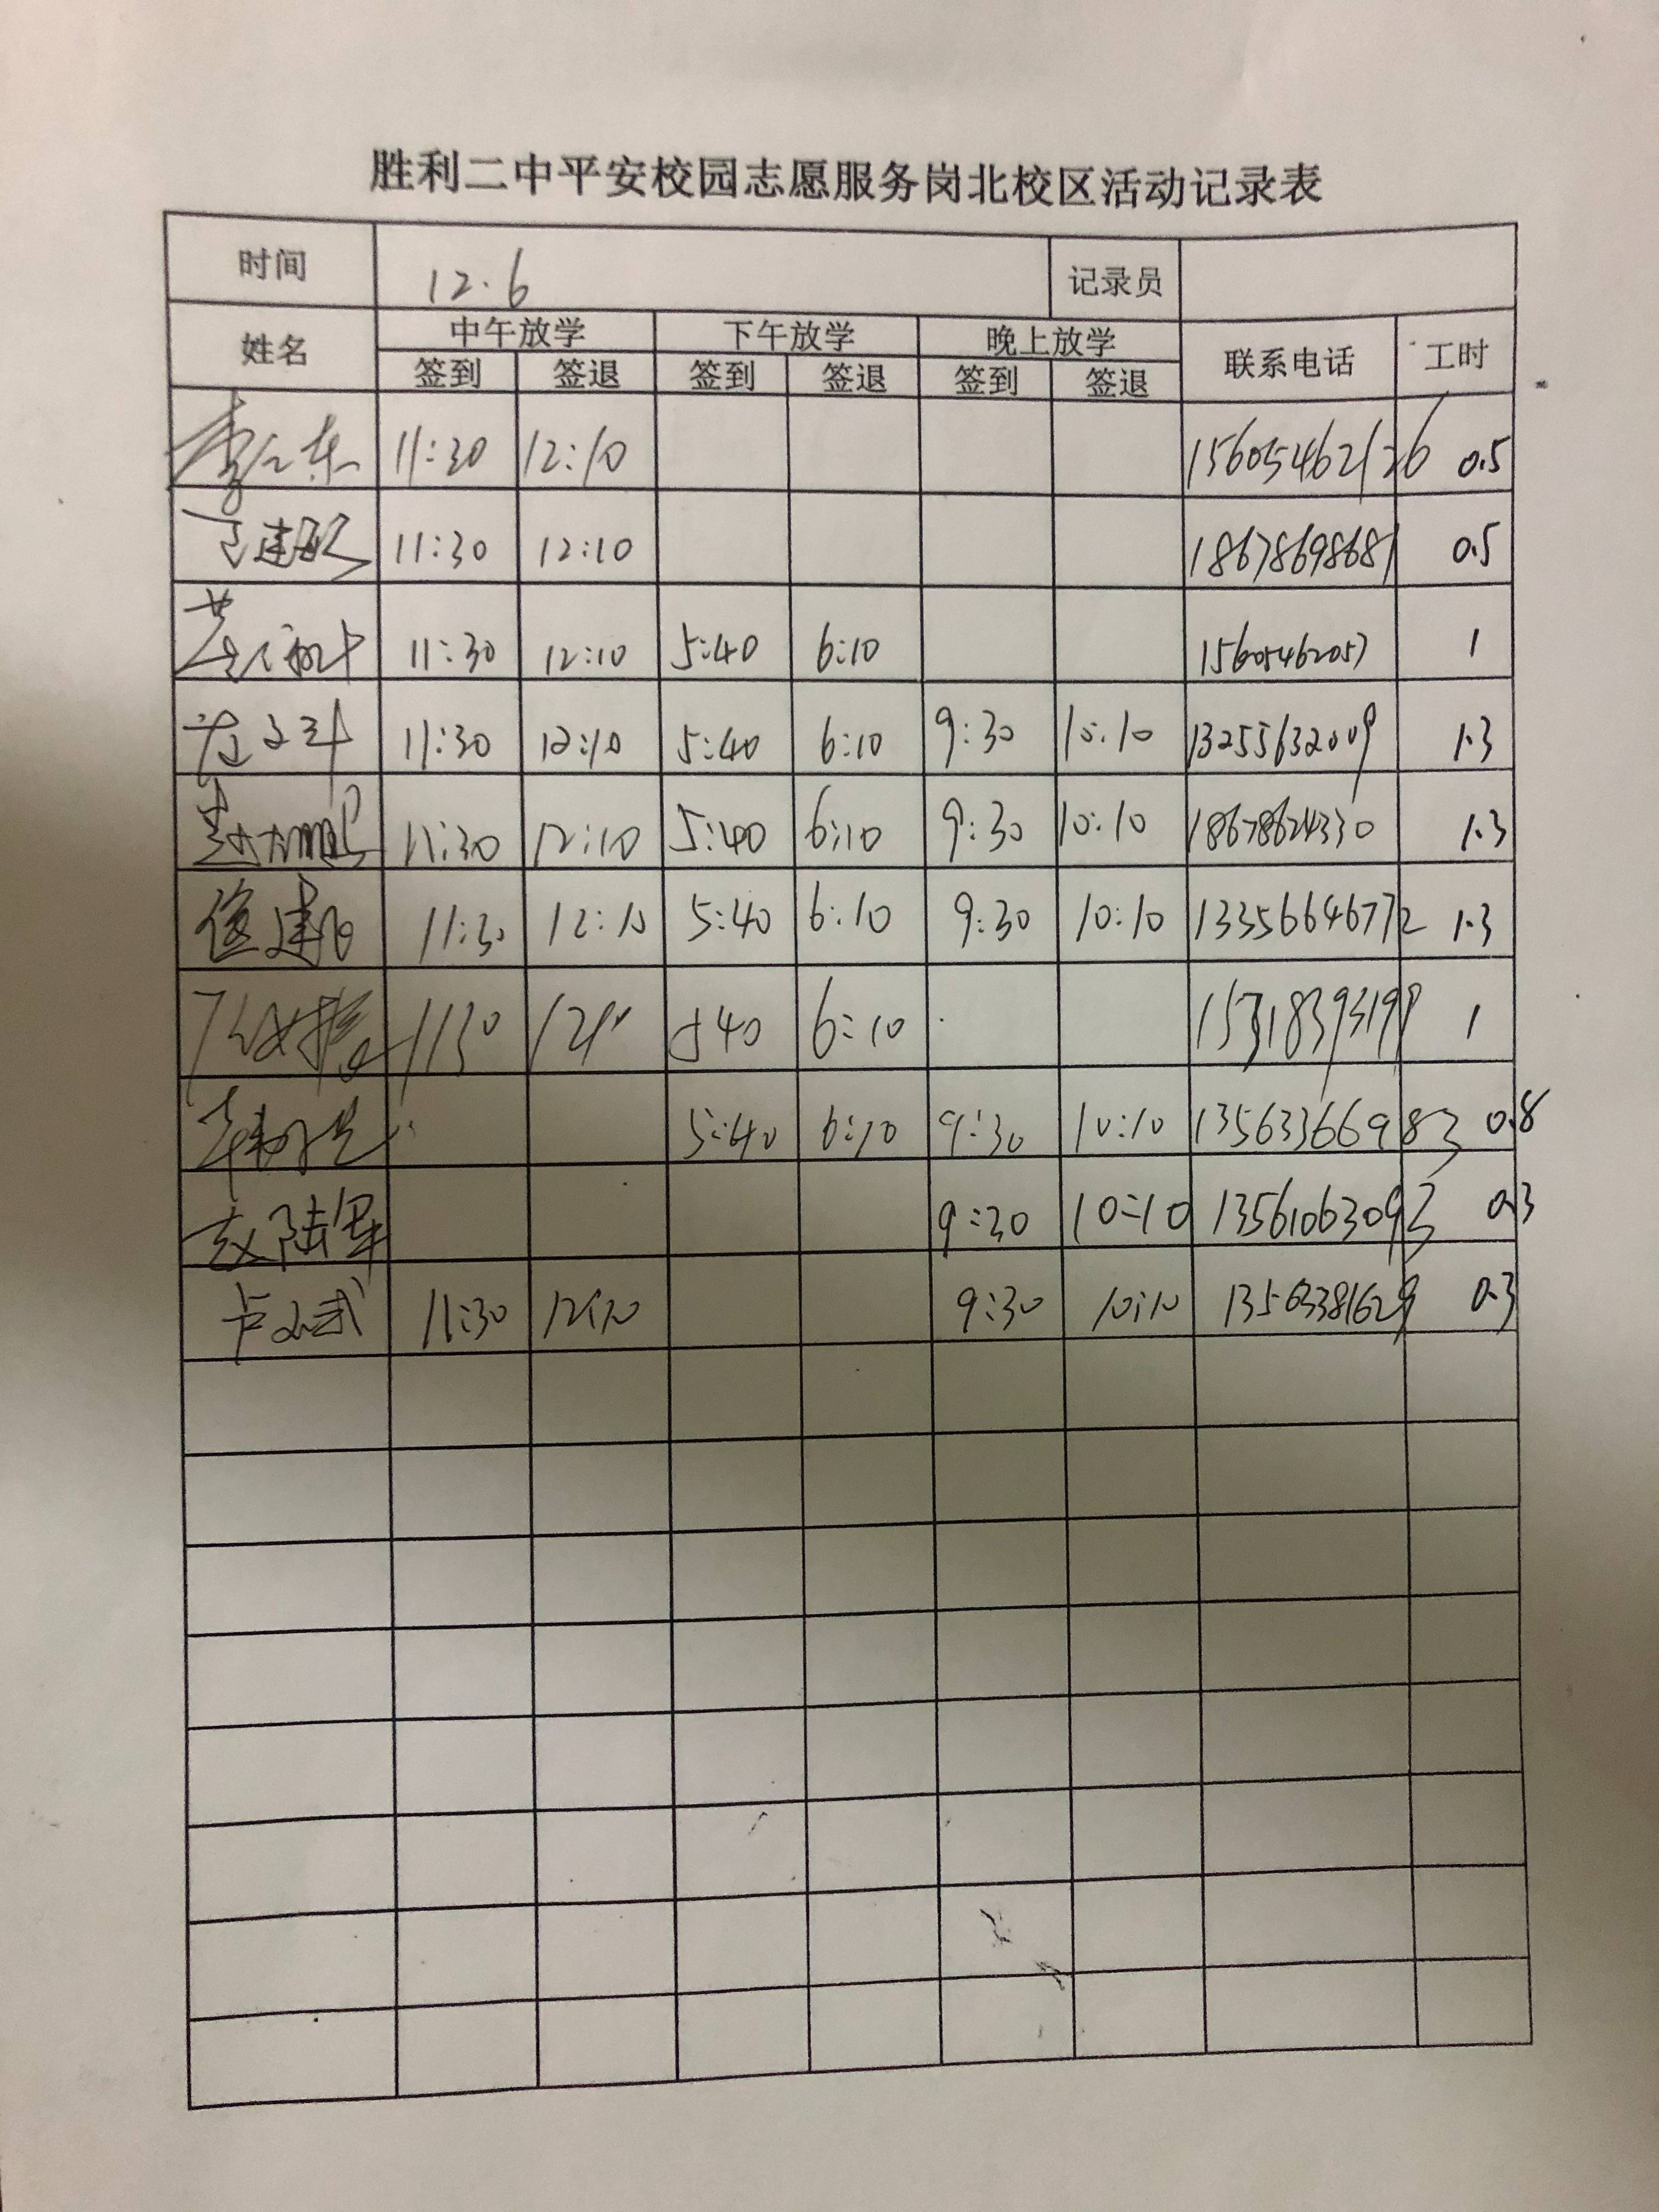 胜利二中平安校园志愿服务岗北校区活动记录表
时间 12.6 记录员
姓名 中午放学 下午放学 晚上放学 联系电话 工时
签到 签退 签到 签退 签到 签退
11:30 12:10 15605462126 0.5
11:30 12:10 18678698681 0.5
11:30 12:10 5:40 6:10 15605462057 1
11:30 12:10 5:40 6:10 9:30 10:10 13255632009 1.3
11:30 12:10 5:40 6:10 9:30 10:10 18678624330 1.3
11:30 12:10 5:40 6:10 9:30 10:10 13356646772 1.3
1130 1210 540 6:10 1
5:40 6:10 9:30 10:10 13563366983 0.8
赵陆军 9:30 10:10 13561063093 0.3
11:30 12:10 9:30 10:10 13563381629 0.3